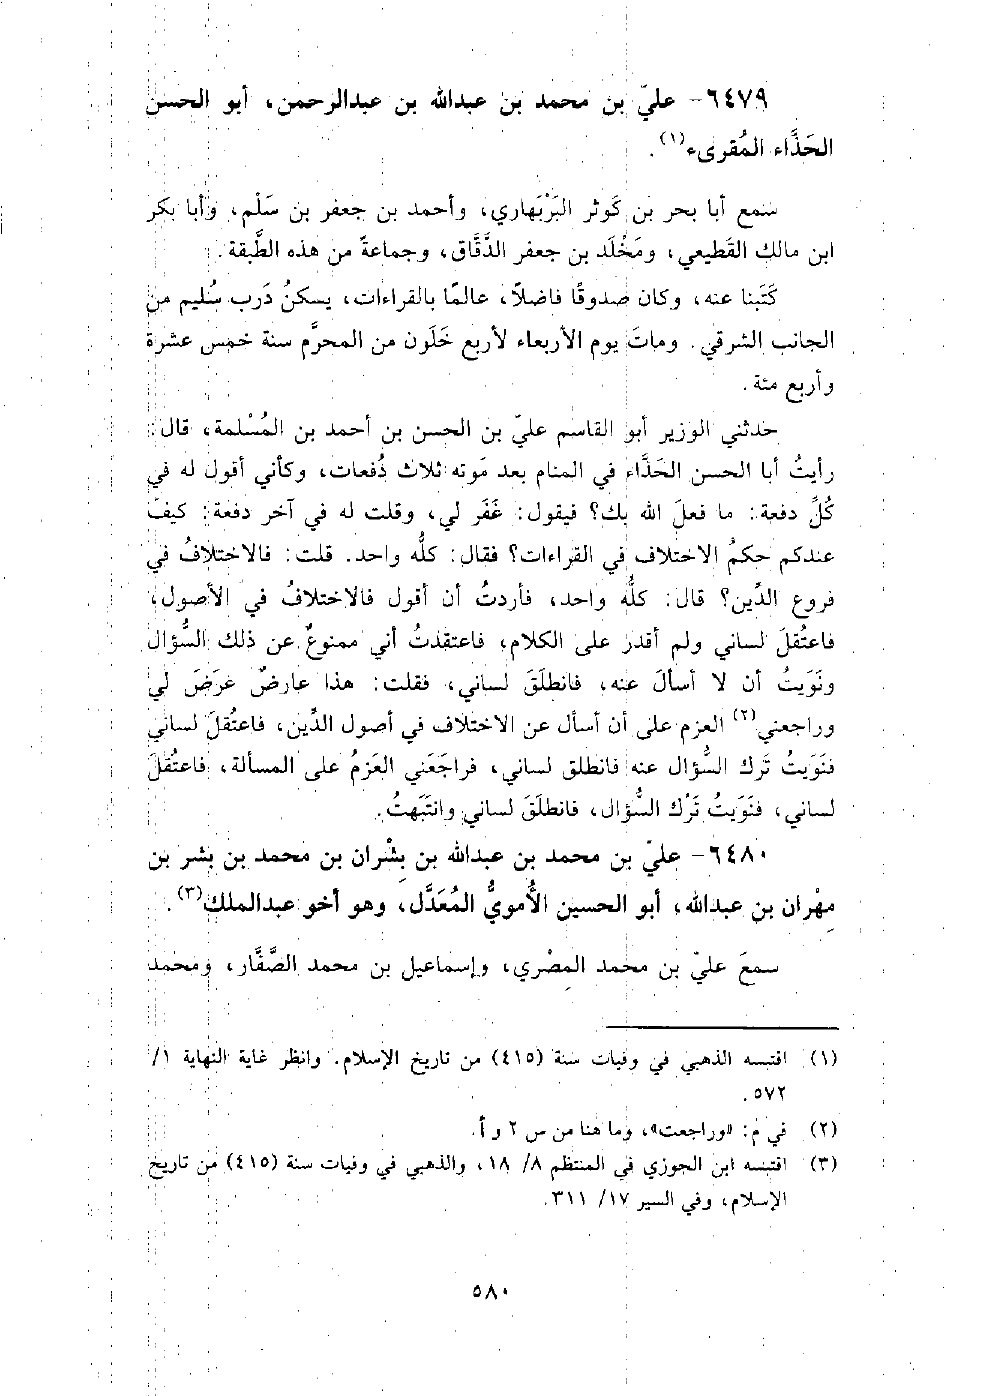 ٦٤٧٩- عليّ بن محمد بن عبدالله بن عبدالرحمن، أبو الحسن
الحَذَّاء المُقرىء(١).
سمع أبا بحر بن كَوثر البَرْبَهاري، وأحمد بن جعفر بن سَلْم، وأبا بكر
ابن مالك القَطيعي، ومَخْلَد بن جعفر الدَّقَّاق، وجماعةً من هذه الطَّبقة.
كَتَبنا عنه، وكان صدوقًا فاضلاً، عالمًا بالقراءات، يسكنُ دَرب سُليم من
الجانب الشرقي. وماتَ يوم الأربعاء لأربع خَلَون من المحرَّم سنة خمس عشرة
وأربع مئة.
حَدثني الوزير أبو القاسم عليّ بن الحسن بن أحمد بن المُسْلمة، قال:
رأيتُ أبا الحسن الحَذَّاء في المنام بعد مَوته ثلاث دُفعات، وكأني أقول له في
كُلِّ دفعة: ما فعلَ الله بك؟ فيقول: غَفَر لي، وقلت له في آخر دفعة: كيفَ
عندكم حكمُ الاختلاف في القراءات؟ فقال: كلُّه واحد. قلت: فالاختلافُ في
فروع الدِّين؟ قال: كلُّه واحد، فأردتُ أن أقول فالاختلافُ في الأصول،
فاعتُقلَ لساني ولم أقدر على الكلام، فاعتقدتُ أني ممنوعٌ عن ذلك السُّؤال
ونَوَيتُ أن لا أسألَ عنه، فانطلَقَ لساني، فقلت: هذا عارضٌ عَرَضَ لي
وراجعني(٢) العزم على أن أسأل عن الاختلاف في أصول الدِّين، فاعتُقلَ لساني
فنَوَيتُ تَرك السُّؤال عنه فانطلق لساني، فراجَعَني العَزمُ على المسألة، فاعتُقلَ
لساني، فنَوَيتُ تَرْك السُّؤال، فانطلَقَ لساني وانتَبَهتُ.
٦٤٨٠- عليّ بن محمد بن عبدالله بن بِشْران بن محمد بن بشر بن
مِهْران بن عبدالله، أبو الحسين الأُمويُّ المُعَدَّل، وهو أخو عبدالملك(٣).
سمعَ عليّ بن محمد المِصْري، وإسماعيل بن محمد الصَّفَّار، ومحمد
(١) اقتبسه الذهبي في وفيات سنة (٤١٥) من تاريخ الإسلام. وانظر غاية النهاية ١/
٥٧٢.
(٢) في م: «وراجعت»، وما هنا من س ٢ و أ.
(٣) اقتبسه ابن الجوزي في المنتظم ٨/ ١٨، والذهبي في وفيات سنة (٤١٥) من تاريخ
الإسلام، وفي السير ١٧/ ٣١١.
٥٨٠